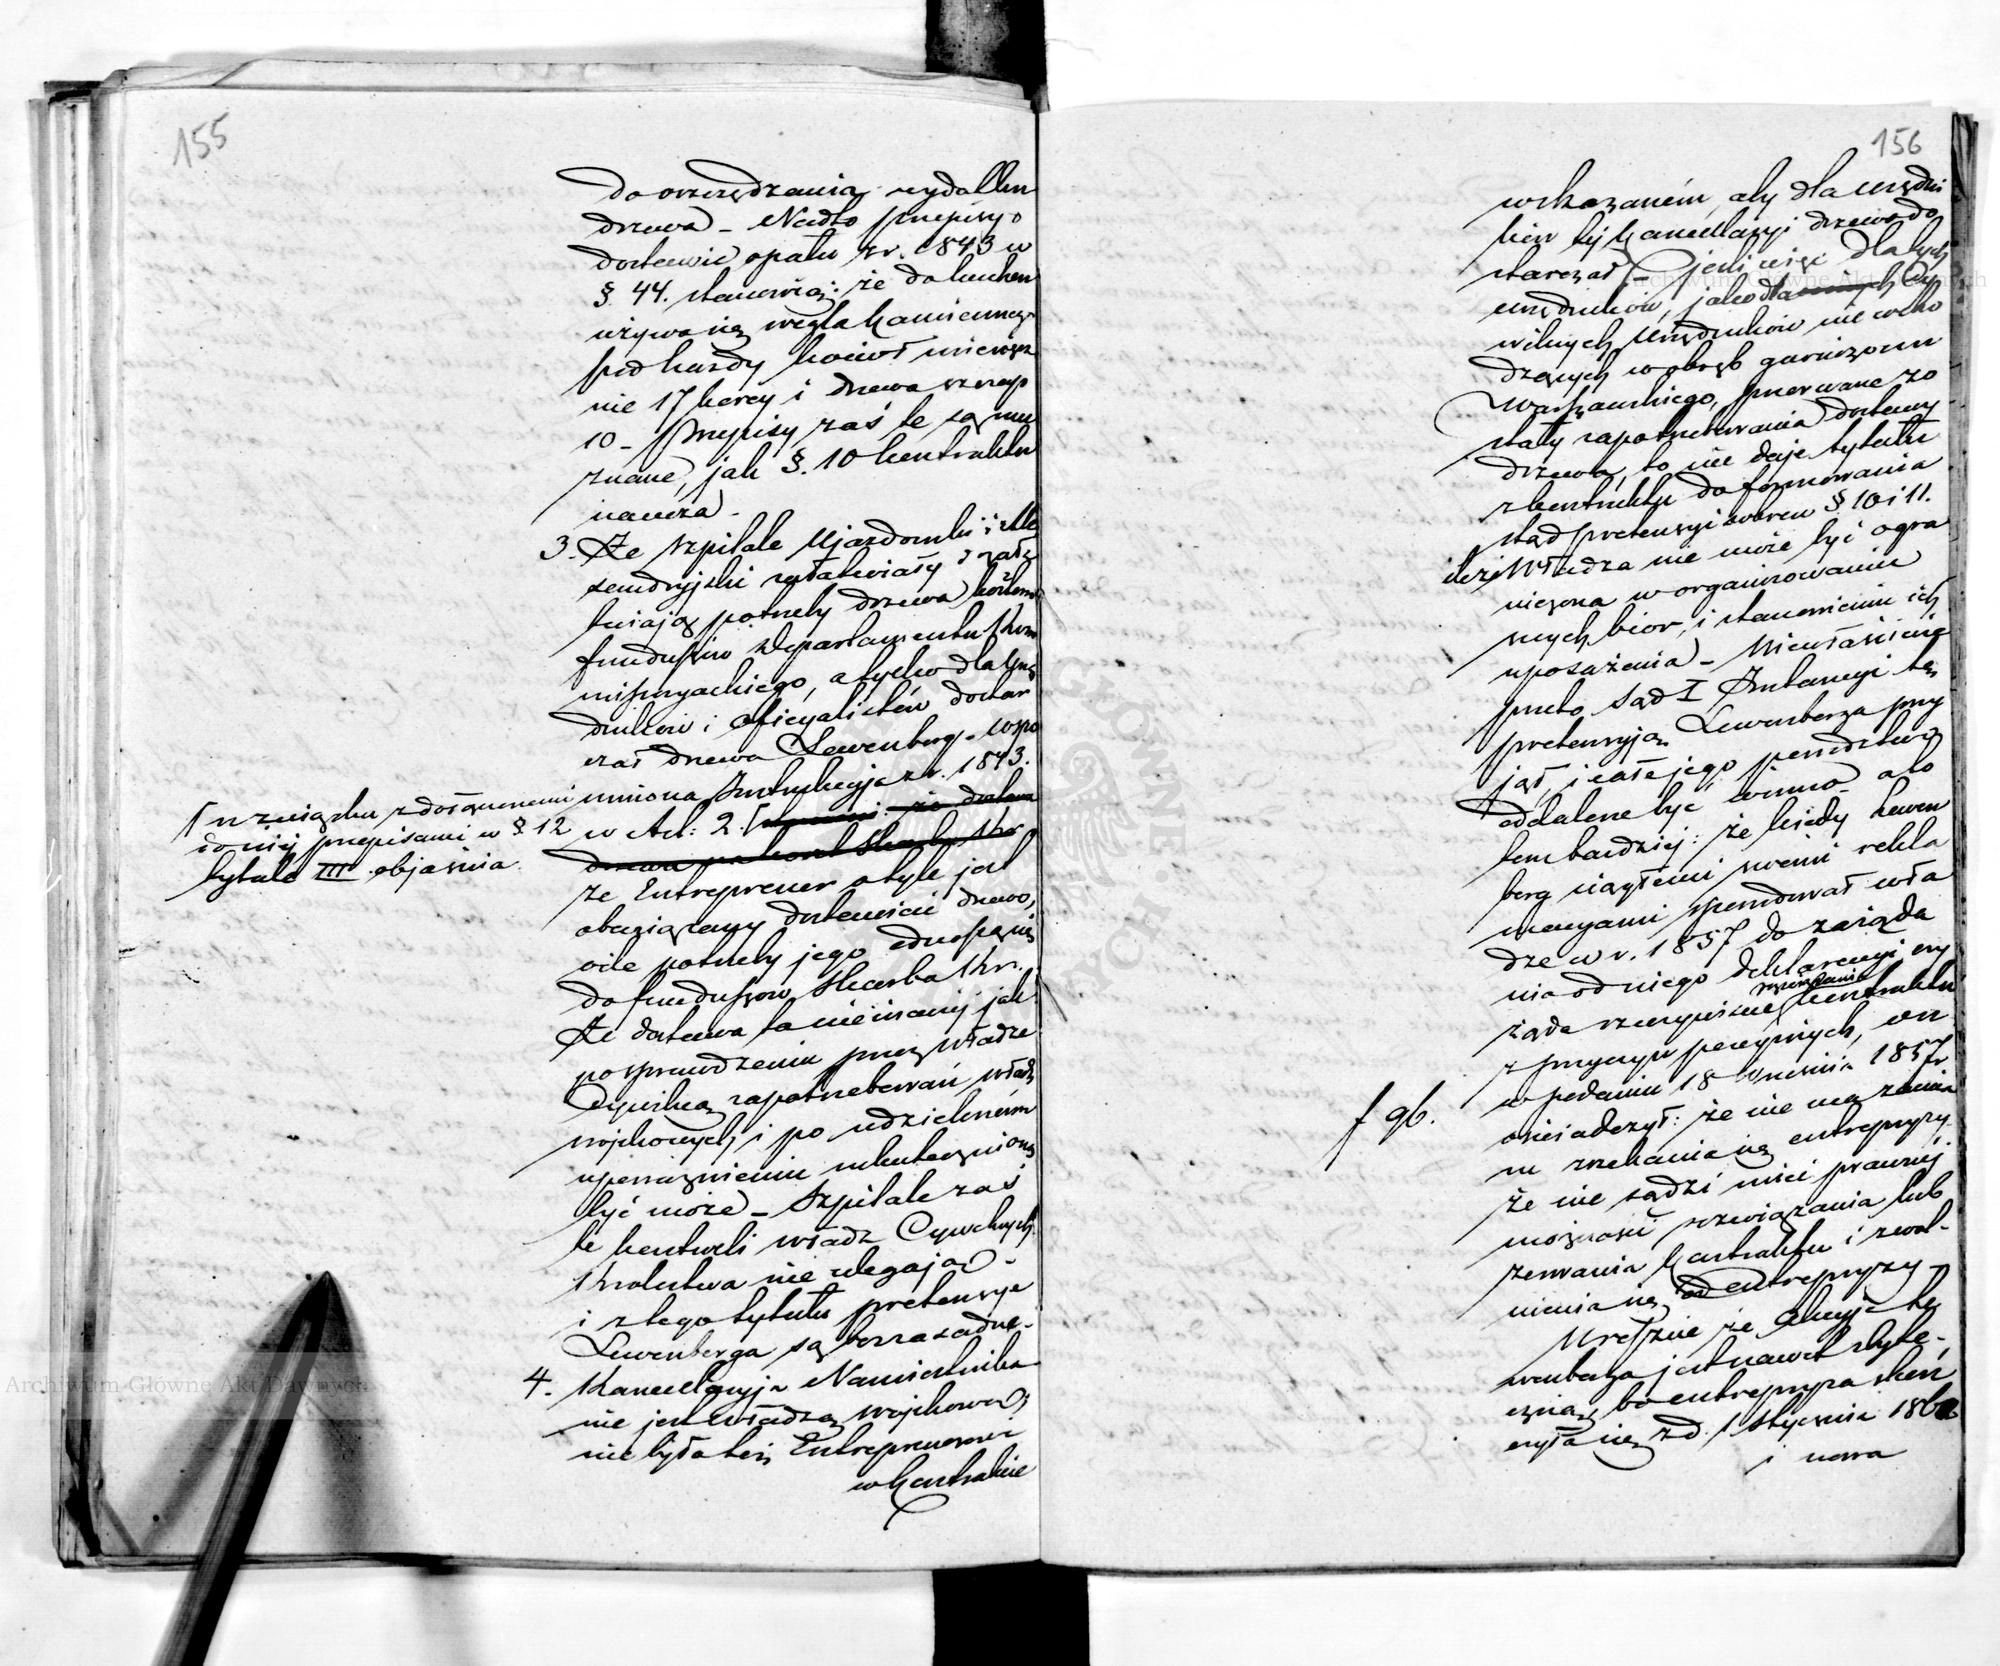 155
do oszczędzania wydatku
drzewa – Nadto przepisy o
dostawie opału z r. 1843 w
§ 44. stanowią: że do kuchen
używa się węgla kamiennego
pod każdy kocioł miesięcz
nie 17 korcy i drzewa sążni
10 – Przepisy zaś te są mu
znane, jak §. 10 kontraktu
naucza –
3. Że szpitale Ujazdowski i Ale
ksandryjski załatwiały
potrzeby drzewa kosztem
funduszów Departamentu Kom
misyaryackiego, a tylko dla Urzę
dników i Oficyalistów dostar
czał drzewa Lewenberg – Wspo
mniona Instrukcyja z r. 1843.
w Art: 2. [
że Entreprener o tyle jest
obowiązany dostawiać drzewo,
o ile potrzeby jego odnoszą się
do funduszów Skarbu Kr.
Że dostawa ta nie inaczej jak
po sprawdzeniu przez Władze
Cywilną zapotrzebowań władz
wojskowych i po udzieleniu
upoważnieniu uskutecznioną
być może – Szpitale zaś
te kontroli władz Cywilnych
Królestwa nie ulegają –
i z tego tytułu pretensye
Lewenberga są bezzasadne –
4. Kancellaryja Namiestnika
nie jest władzą wojskową,
nie była też Entreprenerowi
w Kontrakcie
[ w związku z dołączonemi
do niej przepisami w § 12
tytule III objaśnia
156
wskazaném, aby dla urzędni
ków téj kancellaryi drzewo do
starczał – jeśli więc dla tych
urzędników, jako dla Cy
wilnych Urzędników nie wcho
dzących w obręb garnizonu
Warszawskiego, przerwane zo
stały zapotrzebowania dostawy
drzewa, to nie daje tytułu
z kontraktu do formowania
stąd pretensyi wobec § 10 i 11.
iż Władza nie może być ogra
niczona w organizowaniu
swych biór, i stanowieniu ich
uposażenia – Niewłaściwie
przeto Sąd I Instancyi tę
pretensyją Lewenberga przy
jął, i całe jego powództwo
oddalone być winno – a to
tem bardziej: że kiedy Lewen
berg ciągłemi swemi rekla
macyami spowodował wła
dze w r. 1857 do zażąda
nia od niego deklaracyi czy
rozwiązania
żąda rzeczywiście kontraktu
z przyczyn powyższych, on
w podaniu 18 Września 1857 r
f 96.
oświadczył: że nie ma zamia
ru zrzekania się entrepryzy
że nie sądzi mieć prawnéj
możności rozwiązania lub
zerwania kontraktu i uwol-
nienia się od entrepryzy –
Wreszcie że Akcyja Le
wenberga jest nawet
bo entrepryza skoń
czyła się z d. 1 Stycznia 186
i nowa